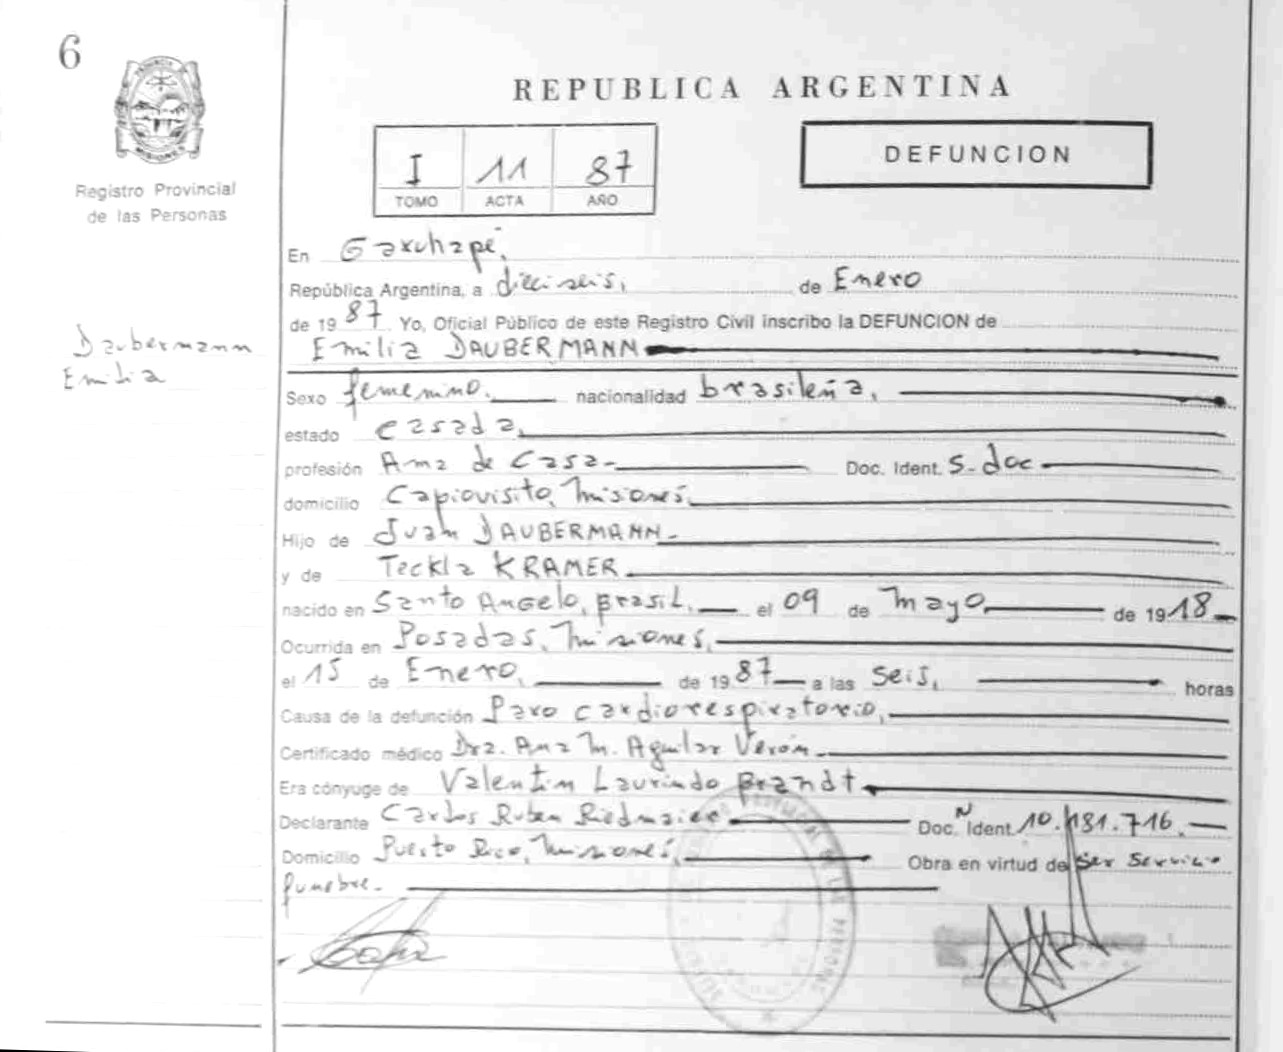 6
REPUBLICA ARGENTINA
PROVINCIA DE
MISIONES
Registro Provincial
de las Personas
I 11 87
TOMO ACTA AÑO
DEFUNCION
En Garuhapé,
República Argentina, a dieciseis, de Enero
de 1987 Yo, Oficial Público de este Registro Civil inscribo la DEFUNCION de
Daubermann
Emilia
Emilia DAUBERMANN
Sexo femenino. nacionalidad brasileña,
estado casada,
profesión Ama de Casa- Doc. Ident. s-doc
domicilio Capiovisito, Misiones.
Hijo de Juan DAUBERMANN-
y de Teckla KRAMER
nacido en Santo Angelo, Brasil, el 09 de Mayo de 1918
Ocurrida en Posadas, Misiones,
el 15 de Enero, de 1987 a las seis, horas
Causa de la defunción Paro cardiorespiratorio,
Certificado médico Dra. Ana M. Aguilar Verón
Era cónyuge de Valentin Laurindo Brandt
Declarante Carlos Ruben Riedmaier Doc. Ident. N 10.181.716.
Domicilio Puerto Rico, Misiones, Obra en virtud de ser servicio
funebre.